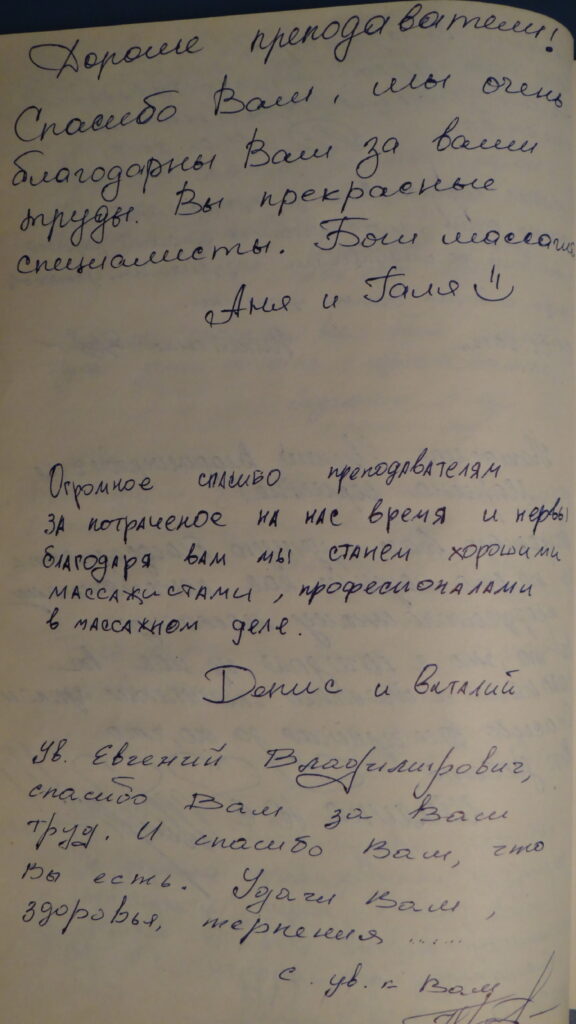 Дорогие преподаватели!
Спасибо Вам, мы очень
благодарны Вам за ваши
труды. Вы прекрасные
специалисты. Боги массажа
Аня и Галя
Огромное спасибо преподавателям
за потраченое на нас время и нервы
благодаря вам мы станем хорошими
массажистами, професионалами
в массажном деле.
Денис и Виталий
Ув. Евгений Владимирович,
спасибо Вам за Ваш
труд. И спасибо Вам, что
Вы есть. Удачи Вам,
здоровья, терпения ......
с ув. к Вам